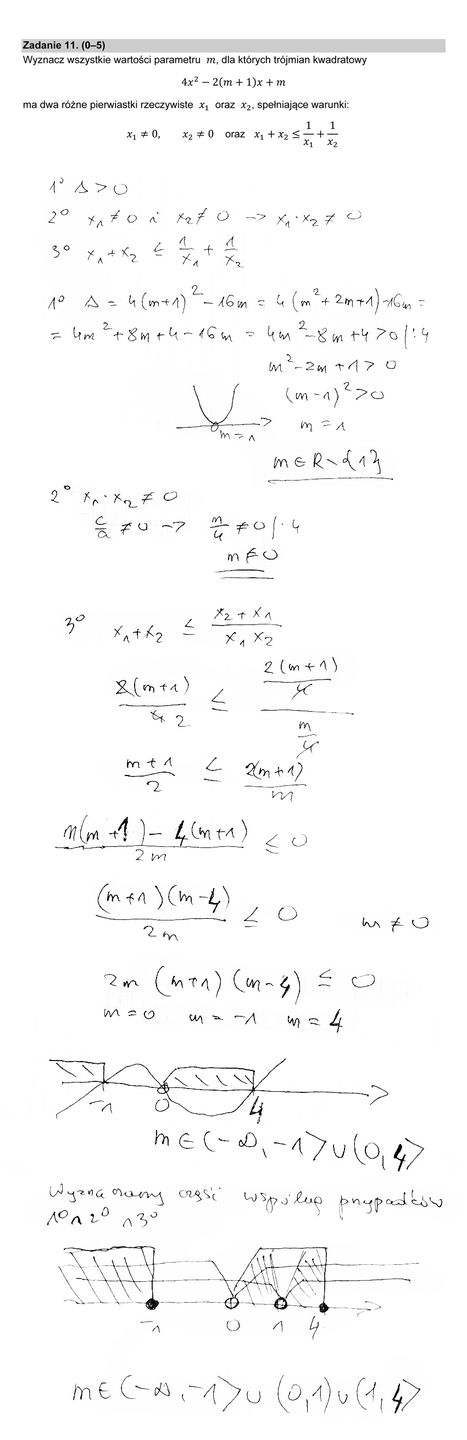 Zadanie 11. (0–5)
Wyznacz wszystkie wartości parametru m, dla których trójmian kwadratowy
4x² − 2(m + 1)x + m
ma dwa różne pierwiastki rzeczywiste x₁ oraz x₂, spełniające warunki:
x₁ ≠ 0, x₂ ≠ 0 oraz x₁ + x₂ ≤ 1/x₁ + 1/x₂
1° Δ > 0
2° x₁ ≠ 0 i x₂ ≠ 0 → x₁·x₂ ≠ 0
3° x₁+x₂ ≤ 1/x₁ + 1/x₂
1° Δ = 4(m+1)² − 16m = 4(m²+2m+1)−16m =
= 4m²+8m+4−16m = 4m²−8m+4 > 0 /:4
m²−2m+1 > 0
(m−1)² > 0
m = 1
m = 1
m ∈ R \ {1}
2° x₁·x₂ ≠ 0
c/a ≠ 0 → m/4 ≠ 0 /·4
m ≠ 0
3° x₁+x₂ ≤ (x₂+x₁)/(x₁x₂)
2(m+1)/4 2 ≤ (2(m+1)/4)/(m/4)
(m+1)/2 ≤ 2(m+1)/m
(m(m+1) − 4(m+1))/2m ≤ 0
((m+1)(m−4))/2m ≤ 0 m ≠ 0
2m (m+1) (m−4) ≤ 0
m = 0 m = −1 m = 4
−1 0 4
m ∈ (−∞, −1> ∪ (0, 4>
Wyznaczamy część wspólną przypadków
1° ∩ 2° ∩ 3°
−1 0 1 4
m ∈ (−∞, −1> ∪ (0, 1) ∪ (1, 4>